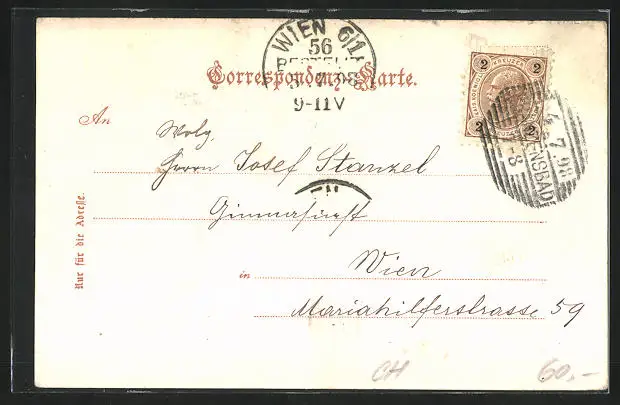 WIEN 6/1
56
BESTELLT
5. 7. 98
9-11V
Correspondenz-Karte.
2 KREUZER 2
2 KREUZER 2
4. 7. 98
ENSBAD
-8
An
Wolg.
Herrn Josef Stanzel
in Wien
Mariahilferstrasse 59
Nur für die Adresse.
CH
60.-